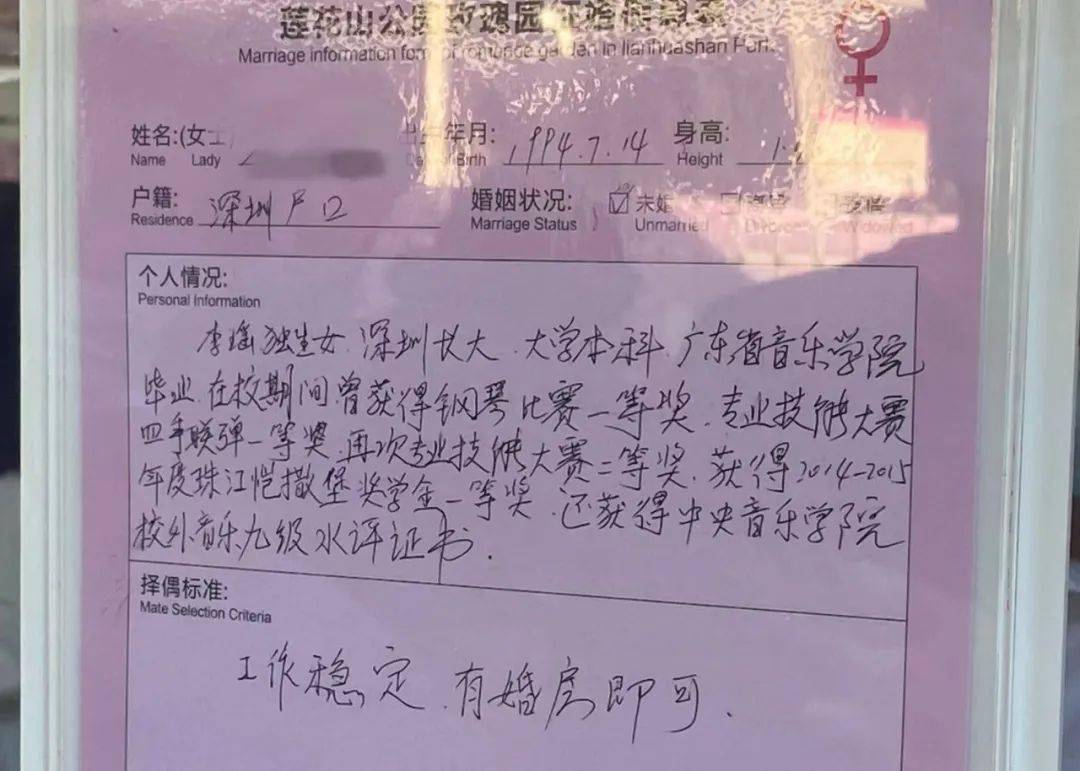 莲花山公园玫瑰园征婚信息表
Marriage information form of romance garden in lianhuashan Park
姓名:(女士 出生年月: 1994.7.14 身高:
Name Lady Date of Birth Height 1.
户籍: 深圳户口 婚姻状况: ☑未婚 □离异 □丧偶
Residence Marriage Status Unmarried Divorced Widowed
个人情况:
Personal Information
李瑶独生女.深圳长大.大学本科.广东省音乐学院
毕业.在校期间曾获得钢琴比赛一等奖.专业技能大赛
四手联弹一等奖.再次专业技能大赛二等奖.获得2014-2015
年度珠江恺撒堡奖学金一等奖.还获得中央音乐学院
校外音乐九级水评证书.
择偶标准:
Mate Selection Criteria
工作稳定.有婚房即可.